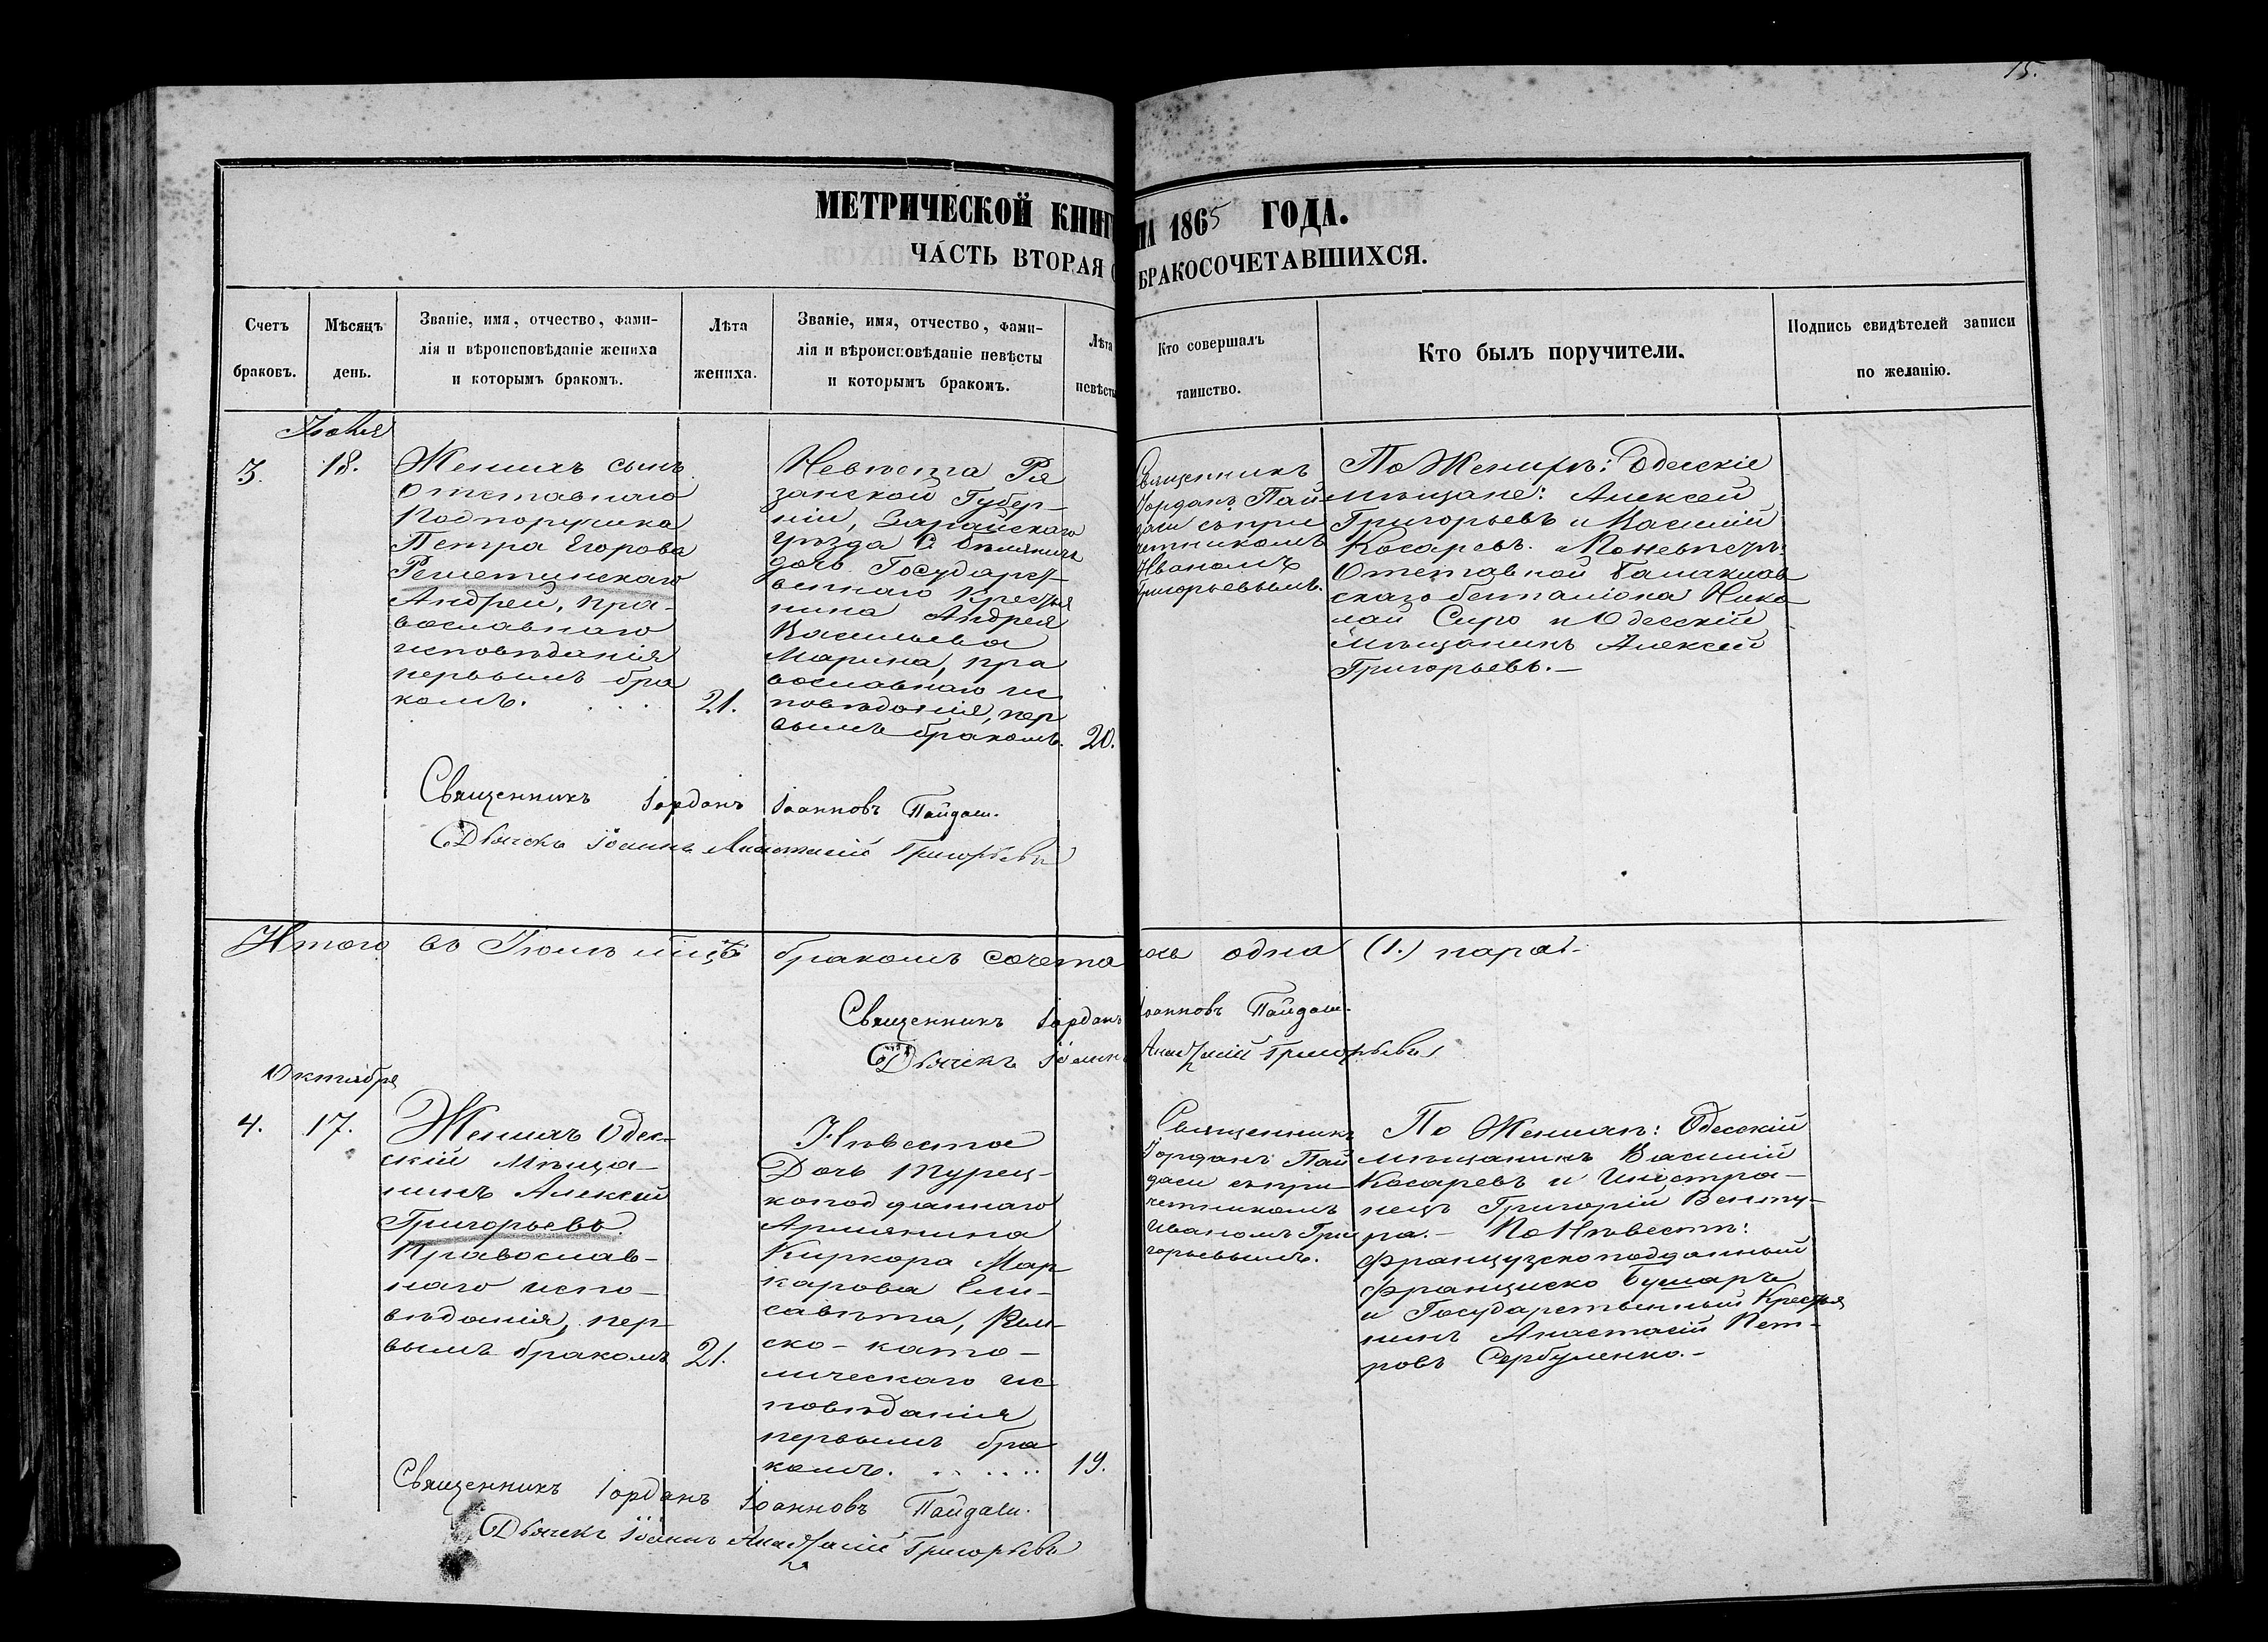 15.
МЕТРИЧЕСКОЙ КНИГ НА 1865 ГОДА.
ЧАСТЬ ВТОРАЯ О БРАКОСОЧЕТАВШИХСЯ.
Счетъ
браковъ.
Мѣсяцъ
день.
Званіе, имя, отчество, фами-
лія и вѣроисповѣданіе жениха
и которымъ бракомъ.
Лѣта
жениха.
Званіе, имя, отчество, фами-
лія и вѣроисповѣданіе невѣсты
и которымъ бракомъ.
Лѣта
невѣсты
Кто совершалъ
таинство.
Кто былъ поручители.
Подпись свидѣтелей записи
по желанію.
3.
18.
Женихъ сынъ
Отставнаго
Подпоручика
Петра Егорова
Решетинскаго
Андрей, пра-
вославнаго
исповѣданія
первымъ бра
комъ.
21.
Невѣста Ря
занской Губер-
ніи, Зарайскаго
уѣзда
дочь Государст-
веннаго Крестья
нина Андрея
Васильева
Марина, пра
вославнаго ис
повѣданія, пер
вымъ бракомъ.
20.
Священникъ
Іорданъ Пай
даши съ при
четникомъ
Иваномъ
Григорьевымъ.
По Женихѣ: Одесскіе
мѣщане: Алексей
Григорьевъ и Василій
Косаревъ. По невѣстѣ:
Отставной Балаклав
скаго баталіона Нико
лай Сиро и Одесскій
мѣщанинъ Алексей
Григорьевъ.—
Священникъ Іорданъ Іоанновъ Пайдаши.
Дьячекъ Іоаннъ Анастасій Григорьевъ
Итого въ мцѣ бракомъ сочета лось одна (1.) пара.
Священникъ Іорданъ Іоанновъ Пайдаши.
Дьячекъ Іоаннъ Анастасій Григорьевъ
Октября
4.
17.
Женихъ Одес-
скій Мѣща-
нинъ Алексей
Григорьевъ
Православ-
наго испо-
вѣданія, пер-
вымъ бракомъ
21.
Нѣвеста
Дочь Турец-
коподданнаго
Армянина
Киркора Мар
карова Ели-
савѣта, Рим-
ско-като-
лическаго ис
повѣданія
первымъ бра
комъ. . . . . .
19.
Священникъ
Іорданъ Пай
даши съ при-
четникомъ
Иваномъ Гри
горьевымъ.
По Женихѣ: Одесскій
мѣщанинъ Василій
Косаревъ и Иностра-
нецъ Григорій Венту-
ра.— По Нѣвестѣ:
Французскоподданный
Франциско Бушаръ
и Государственный Крестья
нинъ Анастасій Пет-
ровъ Сербуленко.—
Священникъ Іорданъ Іоанновъ Пайдаши.
Дьячекъ Іоаннъ Анастасій Григорьевъ